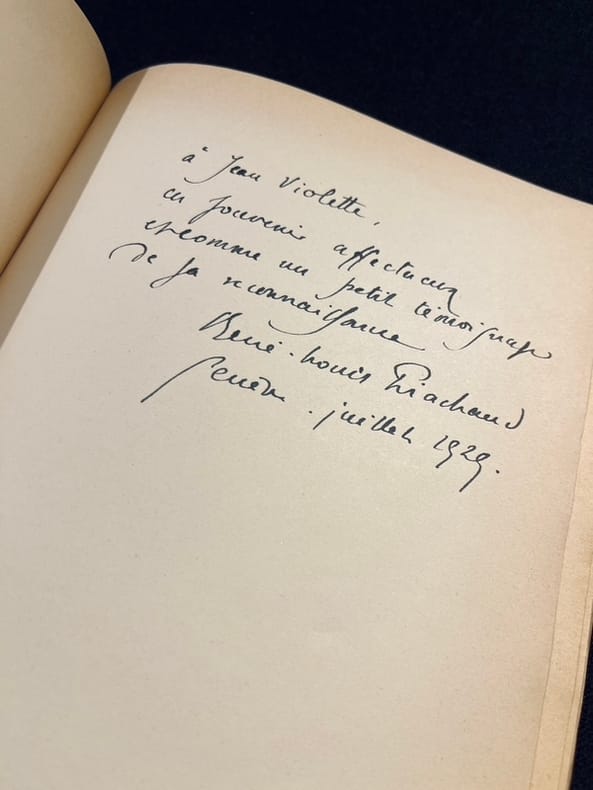 à Jean Violette,
en souvenir affectueux
et comme un petit témoignage
de sa reconnaissance
René-Louis Piachaud
Genève. juillet 1929.